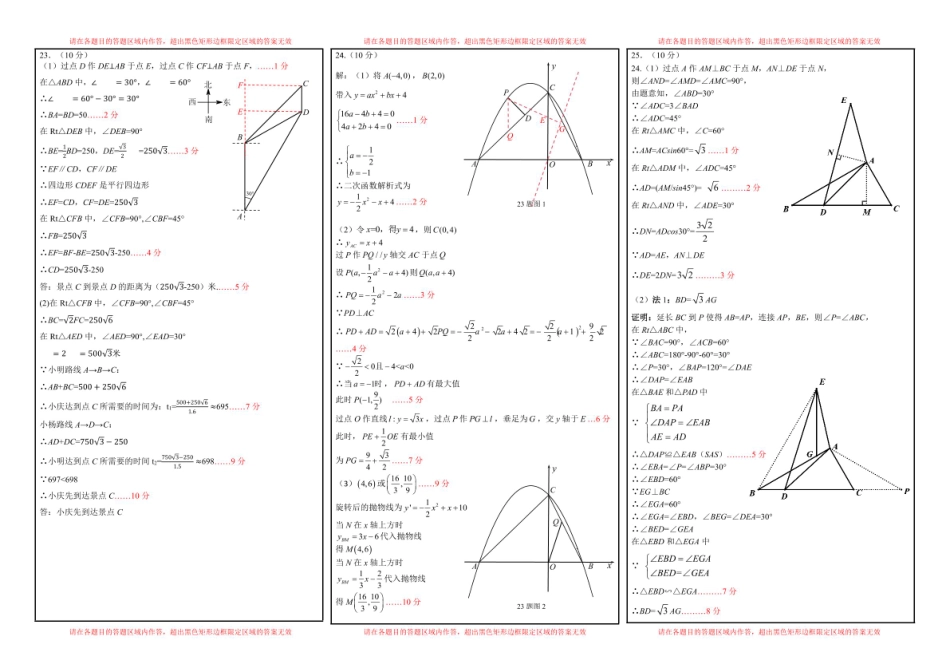 请在各题目的答题区域内作答，超出黑色矩形边框限定区域的答案无效
23．（10 分）
（1）过点 D 作 DE⊥AB 于点 E，过点 C 作 CF⊥AB 于点 F，……1 分
在△ABD 中，∠ = 30°，∠ = 60°
∴∠ = 60° − 30° = 30°
∴BA=BD=50……2 分
在 Rt△DEB 中，∠DEB=90°
∴BE=1/2BD=250，DE=√3/2 =250√3……3 分
∵EF∥CD，CF∥DE
∴四边形 CDEF 是平行四边形
∴EF=CD，CF=DE=250√3
在 Rt△CFB 中，∠CFB=90°,∠CBF=45°
∴FB=250√3
∴EF=BF-BE=250√3-250……4 分
∴CD=250√3-250
答：景点 C 到景点 D 的距离为（250√3-250）米.……5 分
(2)在 Rt△CFB 中，∠CFB=90°,∠CBF=45°
∴BC=√2FC=250√6
在 Rt△AED 中，∠AED=90°,∠EAD=30°
= 2 = 500√3米
∵小明路线 A→B→C:
∴AB+BC=500 + 250√6
∴小庆达到点 C 所需要的时间为：t₁=(500+250√6)/1.6≈695……7 分
小杨路线 A→D→C:
∴AD+DC=750√3 − 250
∴小明达到点 C 所需要的时间 t₂=(750√3−250)/1.5≈698……9 分
∵697<698
∴小庆先到达景点 C……10 分
答：小庆先到达景点 C
北
西 东
南
F C
E D
B
30°
A
请在各题目的答题区域内作答，超出黑色矩形边框限定区域的答案无效
请在各题目的答题区域内作答，超出黑色矩形边框限定区域的答案无效
24.（10 分）
解：（1）将 A(−4,0)，B(2,0)
带入 y = ax² + bx + 4
{16a − 4b + 4 = 0
4a + 2b + 4 = 0 ……1 分
∴{a = −1/2
b = −1
∴二次函数解析式为
y = −1/2x² − x + 4 ……2 分
（2）令 x=0，得y = 4，则 C(0,4)
∴ y_AC = x + 4
过 P 作 PQ // y 轴交 AC 于点 Q
设 P(a,−1/2a² − a + 4) 则 Q(a,a + 4)
∴ PQ = −1/2a² − 2a ……3 分
∵PD⊥AC
∴ PD + AD = √2(a + 4) + √2/2PQ = −√2/2a² − √2/2a + 4√2 = −√2/2(a + 1)² + 9/2√2
……4 分
∵ −√2/2 < 0且 − 4<a<0
∴当 a = −1时，PD + AD 有最大值
此时 P(−1,9/2) ……5 分
过点 O 作直线 l : y = √3x，过点 P 作 PG⊥l，垂足为 G，交 y 轴于 E …6 分
此时，PE + 1/2OE 有最小值
为 PG = 9/4 + √3/2 ……7 分
（3）(4,6) 或 (16/3,10/9) ……9 分
旋转后的抛物线为 y' = −1/2x² + x + 10
当 N 在 x 轴上方时
y_BM = 3x − 6 代入抛物线
得 M(4,6)
当 N 在 x 轴上方时
y_BM = 1/3x − 2/3 代入抛物线
得 M(16/3,10/9) ……10 分
y
P C
D E
G
Q
A O B x
23 题图 1
y
C
Q
A O B x
23 题图 2
请在各题目的答题区域内作答，超出黑色矩形边框限定区域的答案无效
请在各题目的答题区域内作答，超出黑色矩形边框限定区域的答案无效
25．（10 分）
24.（1）过点 A 作 AM⊥BC 于点 M，AN⊥DE 于点 N,
则∠AND=∠AMD=∠AMC=90°,
由题意知，∠ABD=30°
∵∠ADC=3∠BAD
∴∠ADC=45°
在 Rt△AMC 中，∠C=60°
∴AM=ACsin60°=√3 ……1 分
在 Rt△ADM 中，∠ADC=45°
∴AD=(AM/sin45°)= √6 ………2 分
在 Rt△AND 中，∠ADE=30°
∴DN=ADcos30°=3√2/2
∵AD=AE，AN⊥DE
∴DE=2DN=3√2 ………3 分
（2）法 1：BD=√3 AG
证明：延长 BC 到 P 使得 AB=AP，连接 AP，BE，则∠P=∠ABP，
在 Rt△ABC 中，
∵∠BAC=90°，∠ACB=60°
∴∠ABC=180°-90°-60°=30°
∴∠P=30°，∠BAP=120°=∠DAE
∴∠DAP=∠EAB
在△BAE 和△PAD 中
∵ {BA = PA
∠DAP = ∠EAB
AE = AD
∴△DAP≌△EAB（SAS）………5 分
∴∠EBA=∠P=∠ABP=30°
∴∠EBD=60°
∵EG⊥BC
∴∠EGA=60°
∴∠EGA=∠EBD，∠BEG=∠DEA=30°
∴∠BED=∠GEA
在△EBD 和△EGA 中
∵ {∠EBD = ∠EGA
∠BED=∠GEA
∴△EBD∽△EGA………7 分
∴BD=√3 AG………8 分
E
N A
B D M C
E
A
G
B D C P
请在各题目的答题区域内作答，超出黑色矩形边框限定区域的答案无效